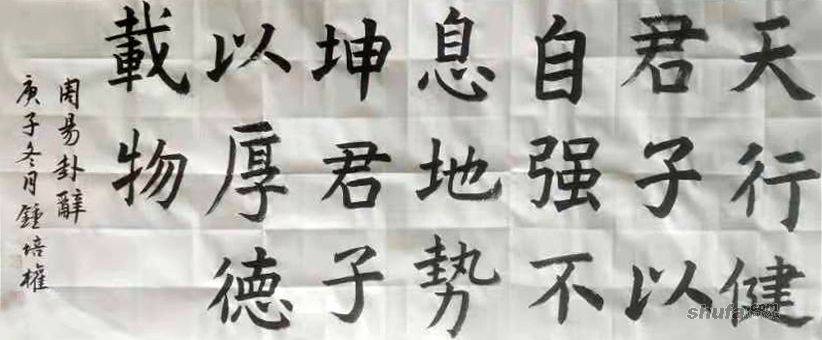 天行健
君子以
自强不
息地勢
坤君子
以厚德
載物
周易卦辭
庚子冬月鍾培權